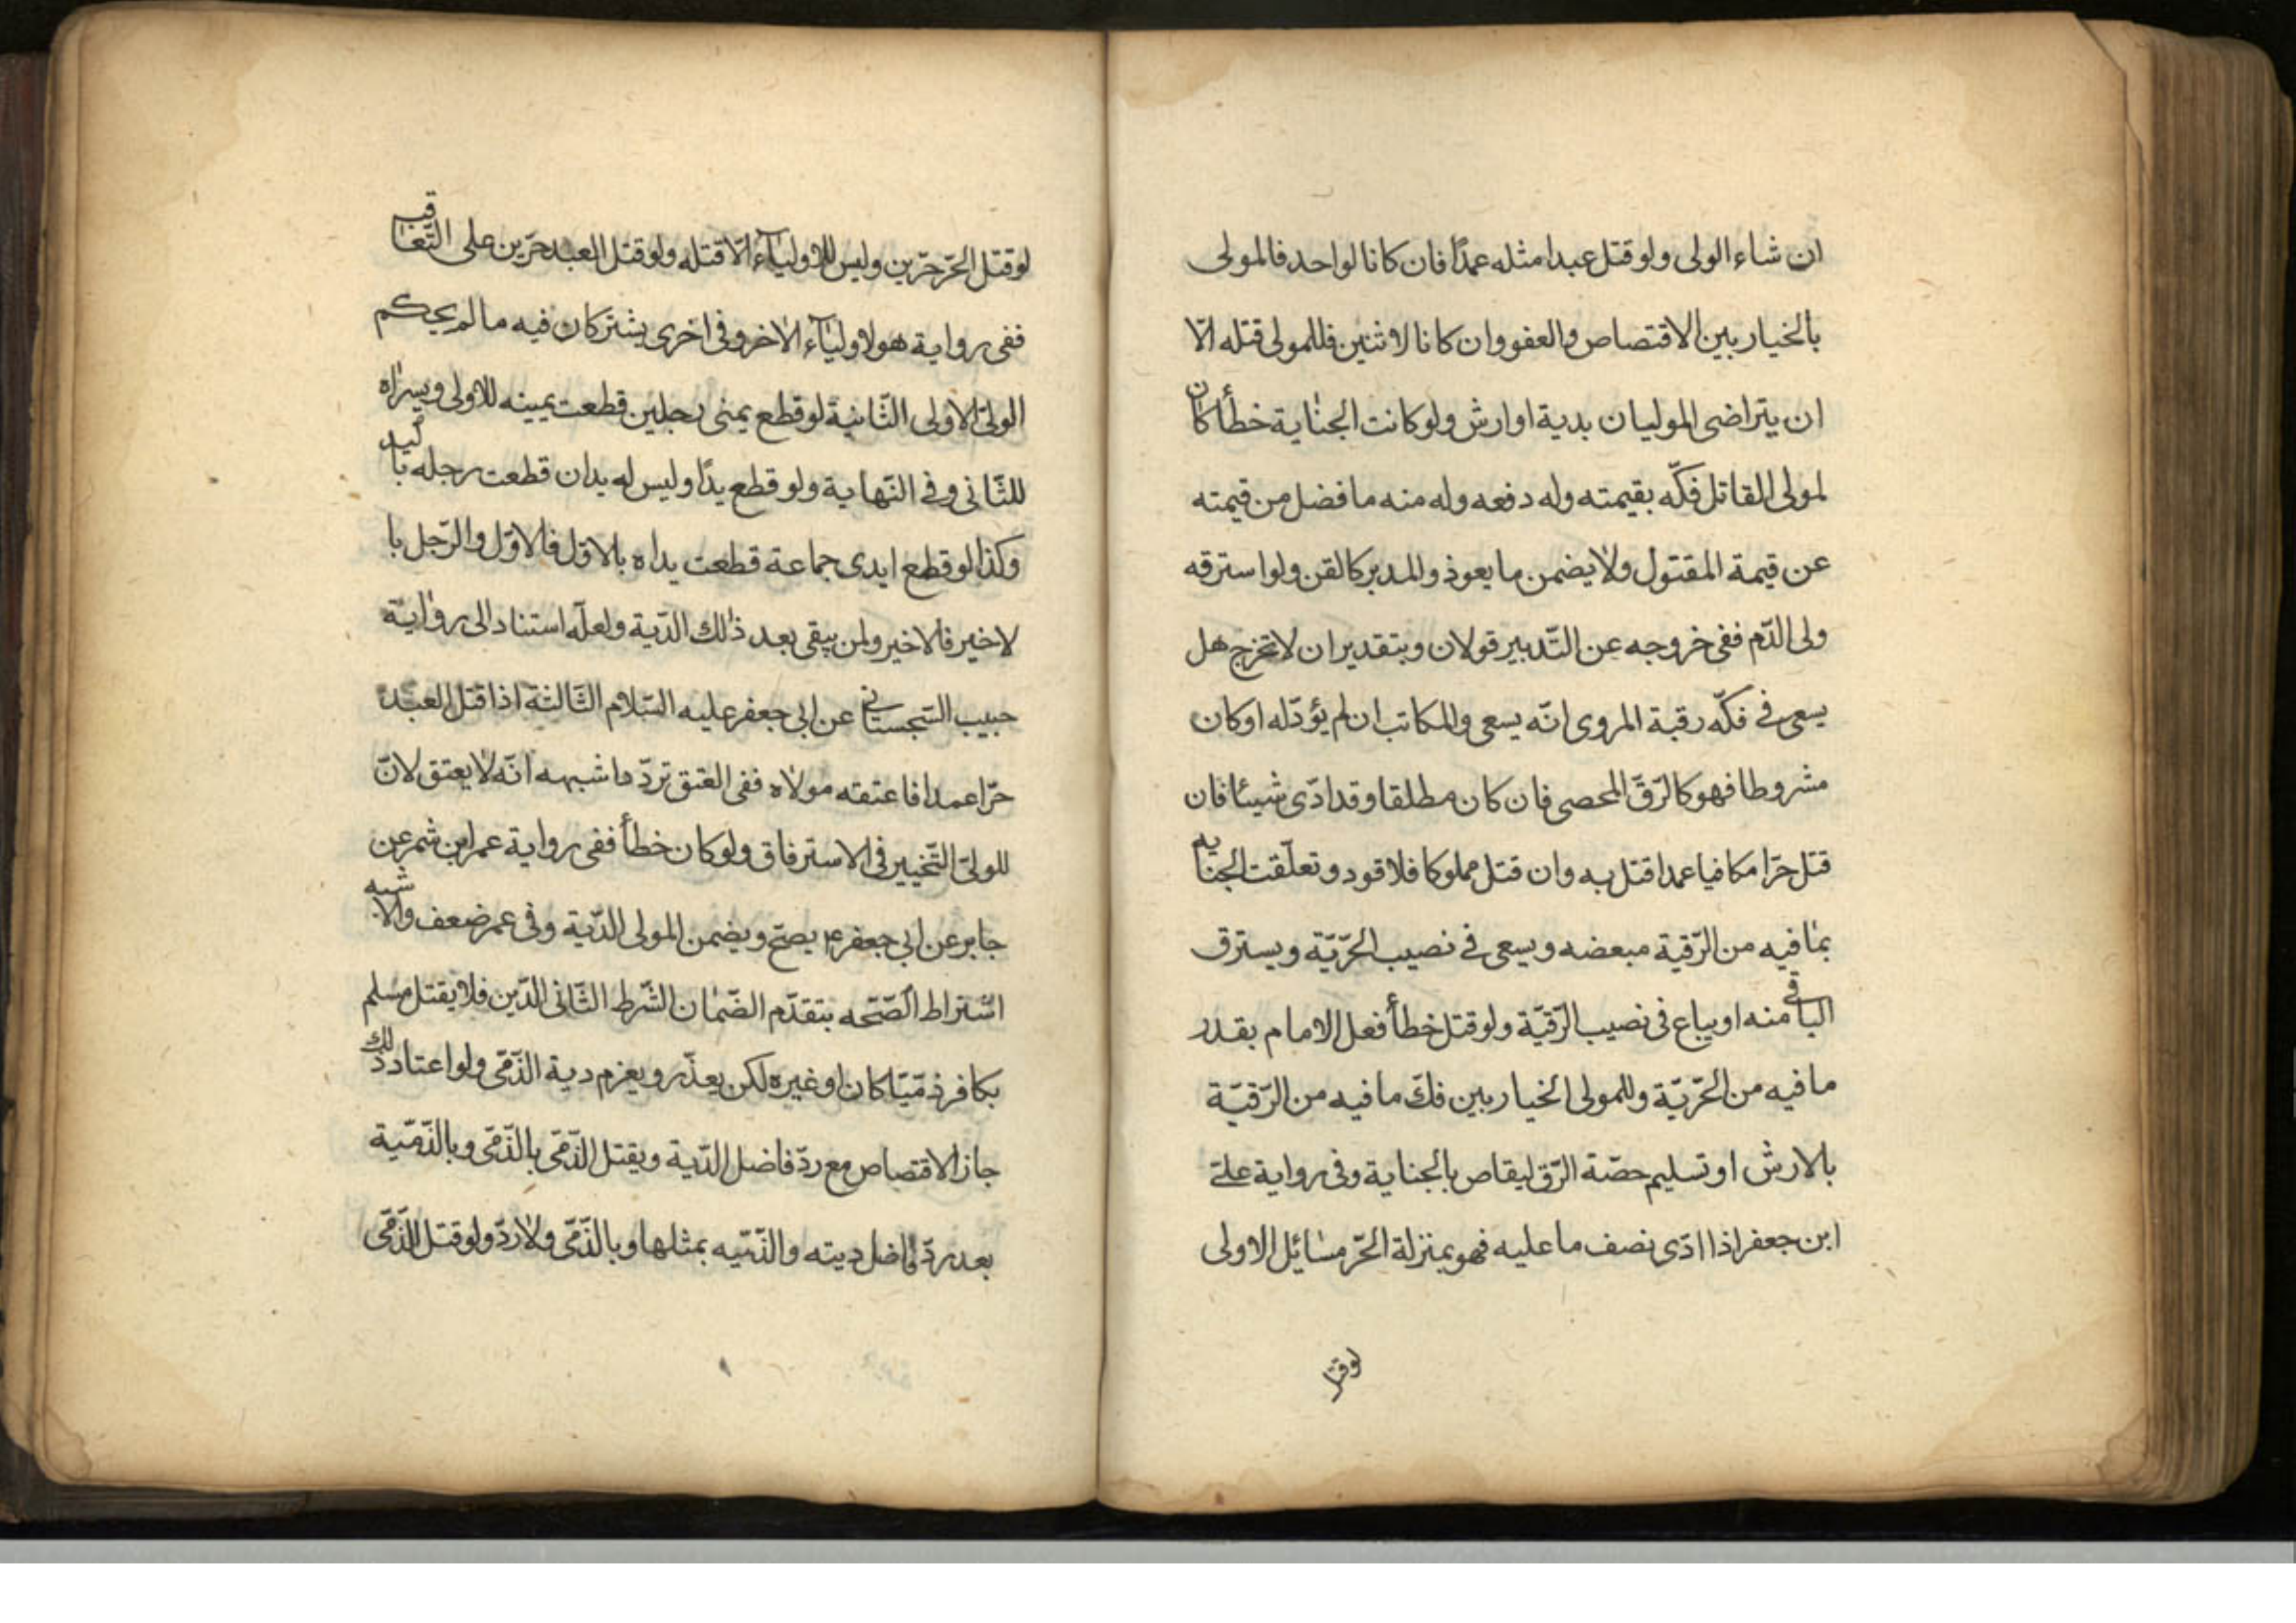 ان شاء الولى ولو قتل عبدا مثله عمدًا فان كانا لواحد فالمولى
بالخيار بين الاقتصاص والعفو وان كانا لاثنين فللمولى قتله الّا
ان يتراضى الموليان بدية او ارش ولو كانت الجناية خطأ كان
لمولى القاتل فكّه بقيمته وله دفعه وله منه ما فضل من قيمته
عن قيمة المقتول ولا يضمن ما يعوذ والمدبر كالقن ولو استرقه
ولى الدّم ففى خروجه عن التّدبير قولان وبتقدير ان لا تخرج هل
يسعى فى فكّه رقبة المروى انّه يسعى والمكاتب ان لم يؤدّ له او كان
مشروطا فهو كالرّقّ المحصى فان كان مطلقا وقد ادّى شيئا فان
قتل حرّا مكافيا عمدا قتل به وان قتل مملوكا فلا قود وتعلّقت الجناية
بما فيه من الرّقية مبعضه ويسعى فى نصيب الحرّيّة ويسترق
الباقى منه او يباع فى نصيب الرّقيّة ولو قتل خطأ فعل الامام بقدر
ما فيه من الحرّيّة وللمولى الخيار بين فكّ ما فيه من الرّقيّة
بالارش او تسليم حصّة الرّق ليقاص بالجناية وفى رواية علىّ
ابن جعفر اذا ادّى نصف ما عليه فهو بمنزلة الحرّ مسائل الاولى
لو قتل
لو قتل الحرّ حرّين وليس للاولياء الّا قتله ولو قتل العبد حرّين على التّعاقب
ففى رواية هو لاولياء الاخر وفى اخرى يشتركان فيه ما لم يحكم
الولىّ الاولى الثّانية لو قطع يمنى رجلين قطعت يمينه للاولى ويسراه
للثّانى وفى النّهاية ولو قطع يدًا وليس له يدان قطعت رجله باليد
وكذا لو قطع ايدى جماعة قطعت يداه بالاوّل فالاوّل والرّجل با
لاخير فالاخير ولمن يبقى بعد ذلك الدّية ولعلّه استنادا الى رواية
حبيب السّجستانى عن ابى جعفر عليه السّلام الثّالثة اذا قتل العبد
حرّا عمدا فاعتقه مولاه ففى العتق تردّد اشبهه انّه لا يعتق لانّ
للولىّ التّخيير فى الاسترقاق ولو كان خطأ ففى رواية عمر ابن شمر عن
جابر عن ابى جعفر ع يصحّ ويضمن المولى الدّية وفى عمر ضعف والاشبه
اشتراط الصّحه بتقدّم الضّمان الشّرط الثّانى الدّين فلا يقتل مسلم
بكافر ذمّيّا كان او غيره لكن يعذّر ويغرم دية الذّمّى ولو اعتاد ذلك
جاز الاقتصاص مع ردّ فاضل الدّية ويقتل الذّمّى بالذّمّى وبالذّمّية
بعد ردّ فاضل ديته والذّميّه بمثلها وبالذّمّى ولا ردّ ولو قتل الذّمّى